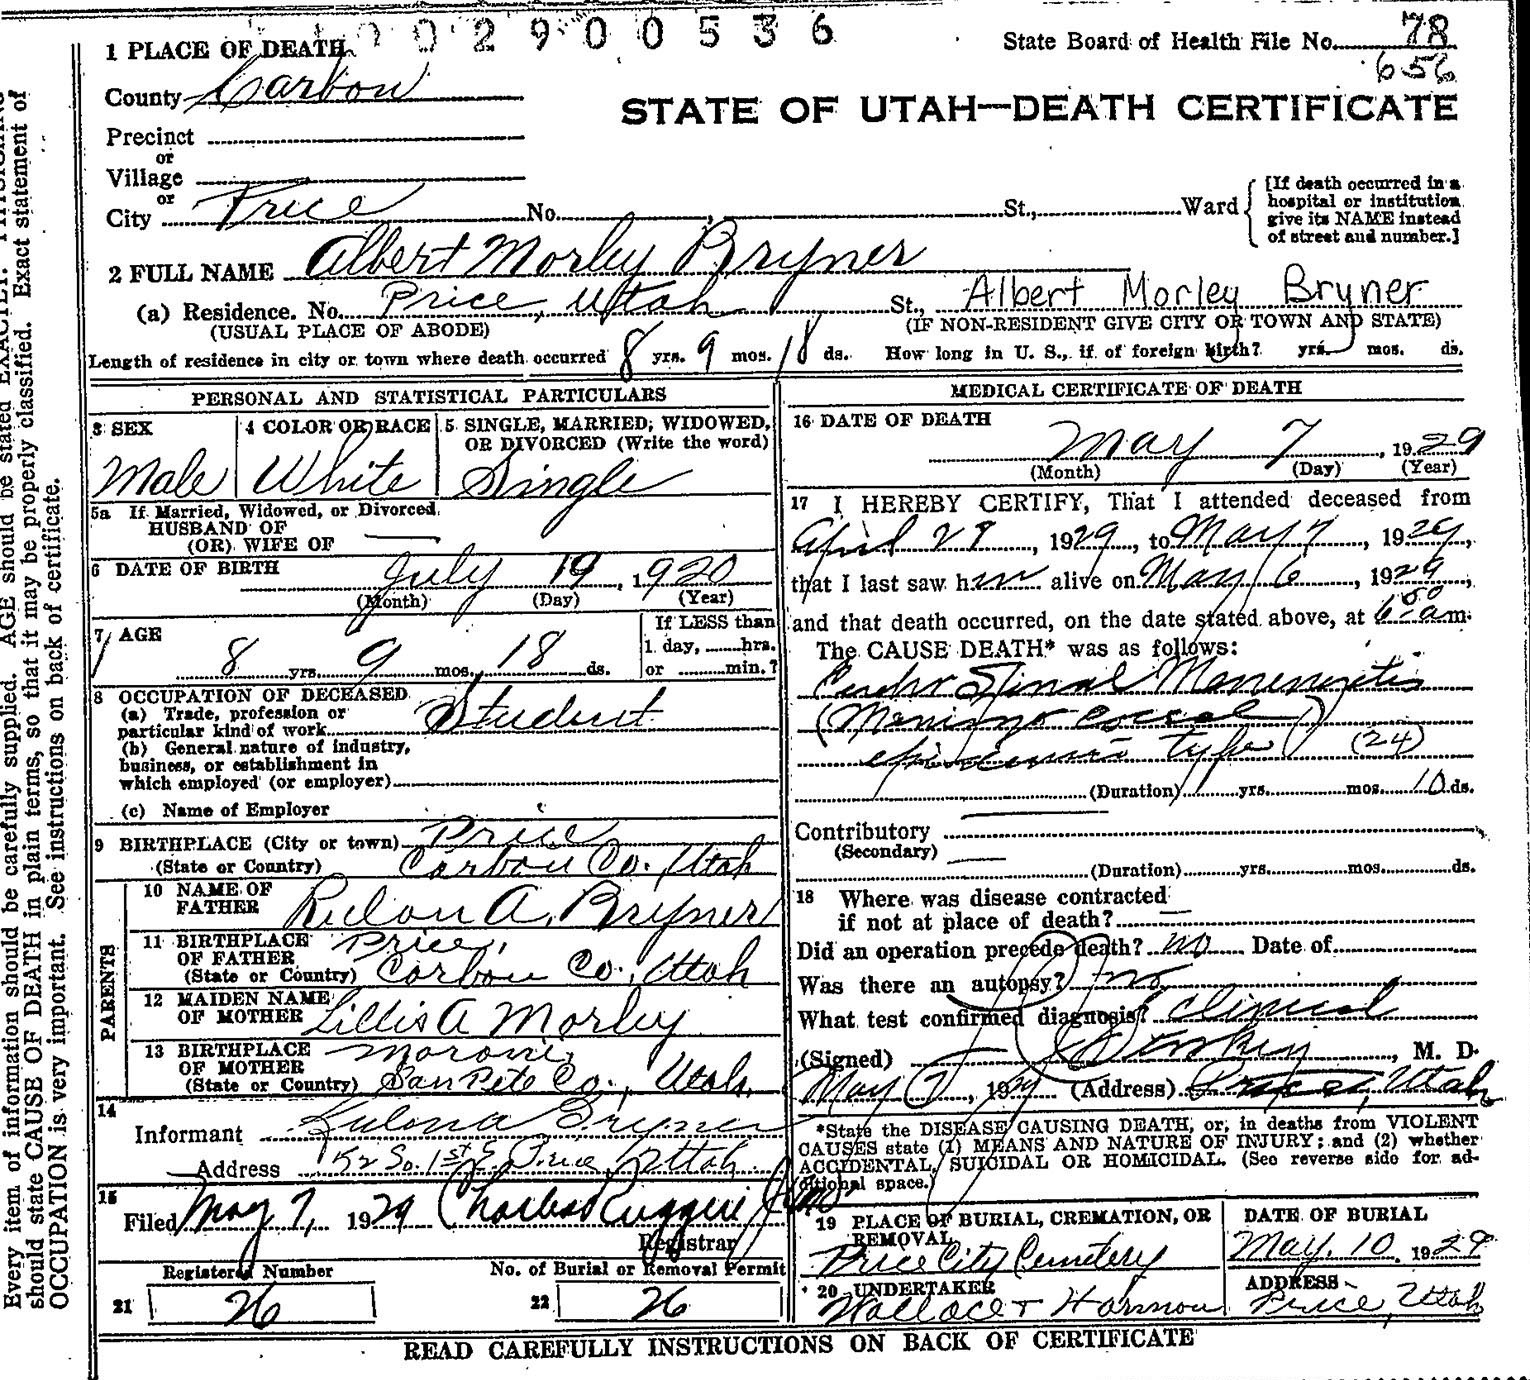 0 0 2 9 0 0 5 3 6
State Board of Health File No. 78
656
1 PLACE OF DEATH
County Carbon
STATE OF UTAH—DEATH CERTIFICATE
Precinct
or
Village
or
City Price No. St., Ward
[If death occurred in a
hospital or institution
give its NAME instead
of street and number.]
2 FULL NAME Albert Morley Bryner
(a) Residence. No. Price, Utah St., Albert Morley Bryner
(USUAL PLACE OF ABODE) (IF NON-RESIDENT GIVE CITY OR TOWN AND STATE)
Length of residence in city or town where death occurred 8 yrs. 9 mos. 18 ds. How long in U. S., if of foreign birth? yrs. mos. ds.
PERSONAL AND STATISTICAL PARTICULARS
3 SEX
Male
4 COLOR OR RACE
White
5 SINGLE, MARRIED, WIDOWED,
OR DIVORCED (Write the word)
Single
5a If Married, Widowed, or Divorced
HUSBAND OF
(OR) WIFE OF
6 DATE OF BIRTH July 19, 1920
(Month) (Day) (Year)
7 AGE
8 yrs. 9 mos. 18 ds.
If LESS than
1 day, hrs.
or min.?
8 OCCUPATION OF DECEASED
(a) Trade, profession or
particular kind of work Student
(b) General nature of industry,
business, or establishment in
which employed (or employer)
(c) Name of Employer
9 BIRTHPLACE (City or town) Price
(State or Country) Carbon Co., Utah
PARENTS
10 NAME OF
FATHER Rulon A. Bryner
11 BIRTHPLACE
OF FATHER Price,
(State or Country) Carbon Co., Utah
12 MAIDEN NAME
OF MOTHER Lillis A Morley
13 BIRTHPLACE
OF MOTHER Moroni,
(State or Country) San Pete Co., Utah,
14
Informant Rulon A Bryner
Address So. 1st E Price, Utah
15
Filed May 7, 1929 Charles Ruggeri
Registrar
Registered Number
21 26
No. of Burial or Removal Permit
22 26
MEDICAL CERTIFICATE OF DEATH
16 DATE OF DEATH
May 7, 1929
(Month) (Day) (Year)
17 I HEREBY CERTIFY, That I attended deceased from
April 28, 1929, to May 7, 1929,
that I last saw him alive on May 6, 1929,
and that death occurred, on the date stated above, at 6:00 a m.
The CAUSE DEATH* was as follows:
Spinal
type (24)
(Duration) yrs. mos. 10 ds.
Contributory
(Secondary)
(Duration) yrs. mos. ds.
18 Where was disease contracted
if not at place of death?
Did an operation precede death? no Date of
Was there an autopsy? no
What test confirmed diagnosis? Clinical
(Signed) , M. D.
May 7, 1929 (Address) Price, Utah
*State the DISEASE CAUSING DEATH, or, in deaths from VIOLENT
CAUSES state (1) MEANS AND NATURE OF INJURY; and (2) whether
ACCIDENTAL, SUICIDAL OR HOMICIDAL. (See reverse side for ad-
ditional space.)
19 PLACE OF BURIAL, CREMATION, OR
REMOVAL
Price City Cemetery
DATE OF BURIAL
May. 10, 1929
20 UNDERTAKER
Wallace & Harmon
ADDRESS
Price, Utah
READ CAREFULLY INSTRUCTIONS ON BACK OF CERTIFICATE
Every item of information should be carefully supplied. AGE should be stated EXACTLY.
should state CAUSE OF DEATH in plain terms, so that it may be properly classified. Exact statement of
OCCUPATION is very important. See instructions on back of certificate.